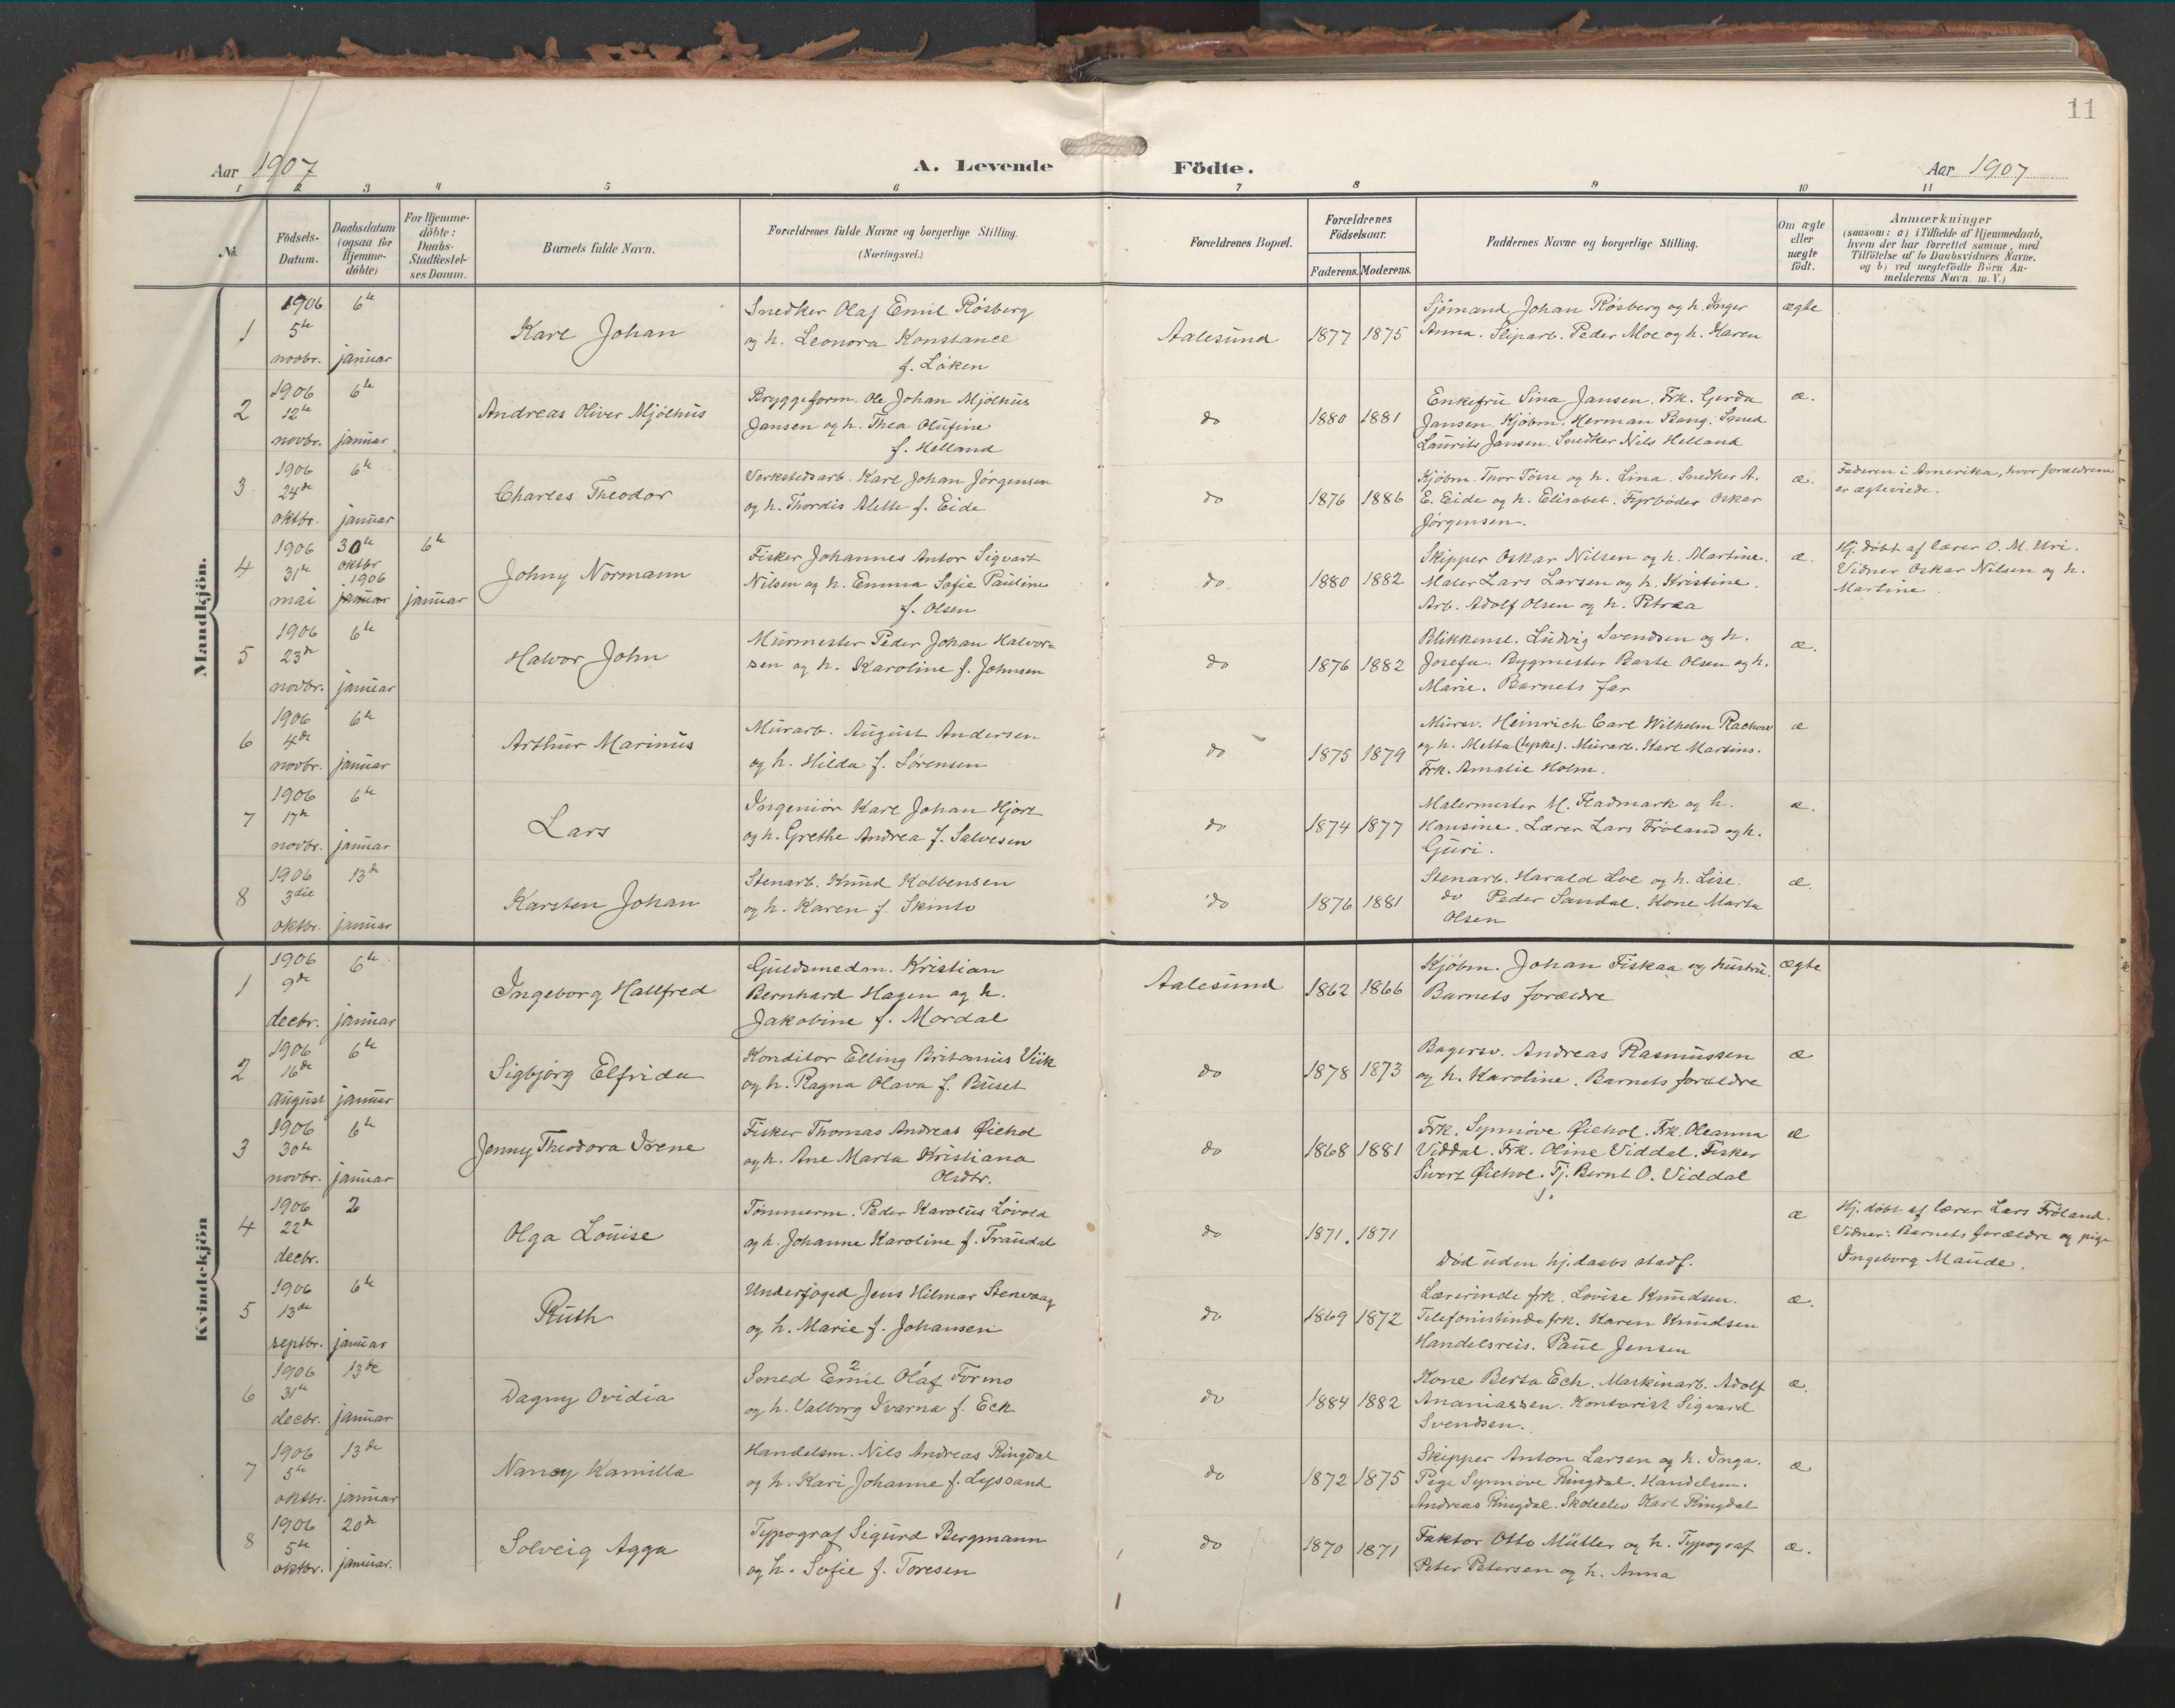 11
Aar 1907
A. Levende Födte.
Aar 1907
1 2 3 4 5 6 7 8 9 10 11
No. Födsels-Datum. Daabsdatum (ogsaa for Hjemme-döbte) For Hjemme-döbte: Daabs-Stadfæstel-ses Datum. Barnets fulde Navn. Forældrenes fulde Navne og borgerlige Stilling. (Næringsvei.) Forældrenes Bopæl. Forældrenes Födselsaar. Faderens. Moderens. Faddernes Navne og borgerlige Stilling. Om ægte eller uægte födt. Anmærkninger (saasom: a) i Tilfælde af Hjemmedaab, hvem der har forrettet samme, med Tilföielse af to Daabsvidners Navne. og b) ved uægtefödte Börn An-melderens Navn m. V.)
Mandkjön.
1 1906 5te novbr. 6te januar
Karl Johan
Snedker Olaf Emil Rósberg
og h. Leonora Konstance
f. Lóken
Aalesund 1877 1875
Sjómand Johan Rósberg og h. Inger
Anna. Sliparb. Peder Moe og h. Karen
ægte
2 1906 12te novbr. 6te januar
Andreas Oliver Mjólhus
Bryggeform. Ole Johan Mjólhus
Jansen og h. Thea Olufine
f. Helland
do 1880 1881
Enkefru Sina Jansen. Frk. Gerda
Jansen. Kjóbm. Herman Bang. Smed
Laurits Jansen. Snedker Nils Helland
æ.
3 1906 24de oktbr. 6te januar
Charles Theodor
Verkstedsarb. Karl Johan Jórgensen
og h. Thordis Alette f. Eide
do 1876 1886
Kjóbm. Thor Tósse og h. Lina. Snedker A.
E. Eide og h. Elisabet. Fyrbóder Oskar
Jórgensen.
æ.
Faderen i Amerika, hvor forældrene
er ægteviede.
4 1906 31te mai 30te oktbr 1906 januar 6te januar
Johny Normann
Fisker Johannes Antor Sigvart
Nilsen og h. Emma Sofie Pauline
f. Olsen
do 1880 1882
Skipper Oskar Nilsen og h. Martine.
Maler Lars Larsen og h. Kristine.
Arb. Adolf Olsen og h. Petrea
æ.
Hj. dóbt af lærer O. M. Uri.
Vidner Oskar Nilsen og h.
Martine.
5 1906 23de novbr. 6te januar
Halvor John
Murmester Peder Johan Halvor-
sen og h. Karoline f. Johnsen
do 1876 1882
Blikkensl. Ludvig Svendsen og h.
Josefa. Bygmester Barte Olsen og h.
Marie. Barnets far
æ.
6 1906 4de novbr. 6te januar
Arthur Marinus
Murarb. August Andersen
og h. Hilda f. Sórensen
do 1875 1879
Mursv. Heinrich Carl Wilhelm Rachow
og h. Metta (tyske). Murarb. Karl Martins.
Frk. Amalie Holm.
æ
7 1906 17de novbr. 6te januar
Lars
Ingeniór Karl Johan Hjort
og h. Grethe Andrea f. Salvesen
do 1874 1877
Malermester M. Fladmark og h.
Hansine. Lærer Lars Fróland og h.
Guri.
æ.
8 1906 3die oktbr. 13de januar
Karsten Johan
Stenarb. Knud Kolbensen
og h. Karen f. Skinlo
do 1876 1881
Stenarb. Harald Loe og h. Lise.
do Peder Sandal. Kone Marta
Olsen
æ.
Kvindekjön
1 1906 9de decbr. 6te januar
Ingeborg Hallfred
Guldsmedm. Kristian
Bernhard Hagen og h.
Jakobine f. Mordal
Aalesund 1862 1866
Kjóbm. Johan Fiskaa og hustru.
Barnets forældre
ægte
2 1906 16de august 6te januar
Sigbjórg Elfrida
Konditor Elling Britanius Viik
og h. Ragna Olava f. Buset
do 1878 1873
Bagersv. Andreas Rasmussen
og h. Karoline. Barnets forældre
æ
3 1906 30te novbr. 6te januar
Jenny Theodora Irene
Fisker Thomas Andreas Øiehol
og h. Ane Marta Kristiana
Olsdtr.
do 1868 1881
Frk. Synnóve Øiehol. Frk. Oleanna
Viddal. Frk. Oline Viddal. Fisker
Sivert Øiehol. Tj. Bernt O. Viddal
æ
4 1906 22de decbr. 2
Olga Louise
Tómmerm. Peder Karolus Lóvold
og h. Johanne Karoline f. Trandal
do 1871. 1871
Dód uden hj.daabs stadf.
æ
Hj. dóbt af lærer Lars Fróland.
Vidner: Barnets forældre og pige
Ingeborg Maude.
5 1906 13de septbr. 6te januar
Ruth
Underfoged Jens Hilmar Stenvaag
og h. Marie f. Johansen
do 1869 1872
Lærerinde frk. Lovise Knudsen.
Telefonistinde frk. Karen Knudsen
Handelsreis. Paul Jensen
æ.
6 1906 31te decbr. 13de januar
Dagny Ovidia
Smed Emil Olaf Formo
og h. Valborg Ivarna f. Eck
do 1884 1882
Kone Berta Ech. Maskinarb. Adolf
Ananiassen. Kontorist Sigvard
Svendsen.
æ.
7 1906 5te oktbr. 13de januar
Nancy Kamilla
Handelsm. Nils Andreas Ringdal
og h. Kari Johanne f. Lyssand
do 1872 1875
Skipper Anton Larsen og h. Inga.
Pige Synnóve Ringdal. Handelsm.
Andreas Ringdal. Skoleelev Karl Ringdal
æ
8 1906 5te oktbr. 20de januar.
Solveig Agga
Typograf Sigurd Bergmann
og h. Sofie f. Toresen
do 1870 1871
Faktor Otto Müller og h. Typograf
Peter Petersen og h. Anna
æ.